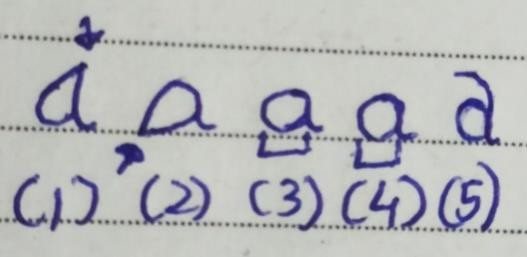 a a a a a
(1) (2) (3) (4) (5)